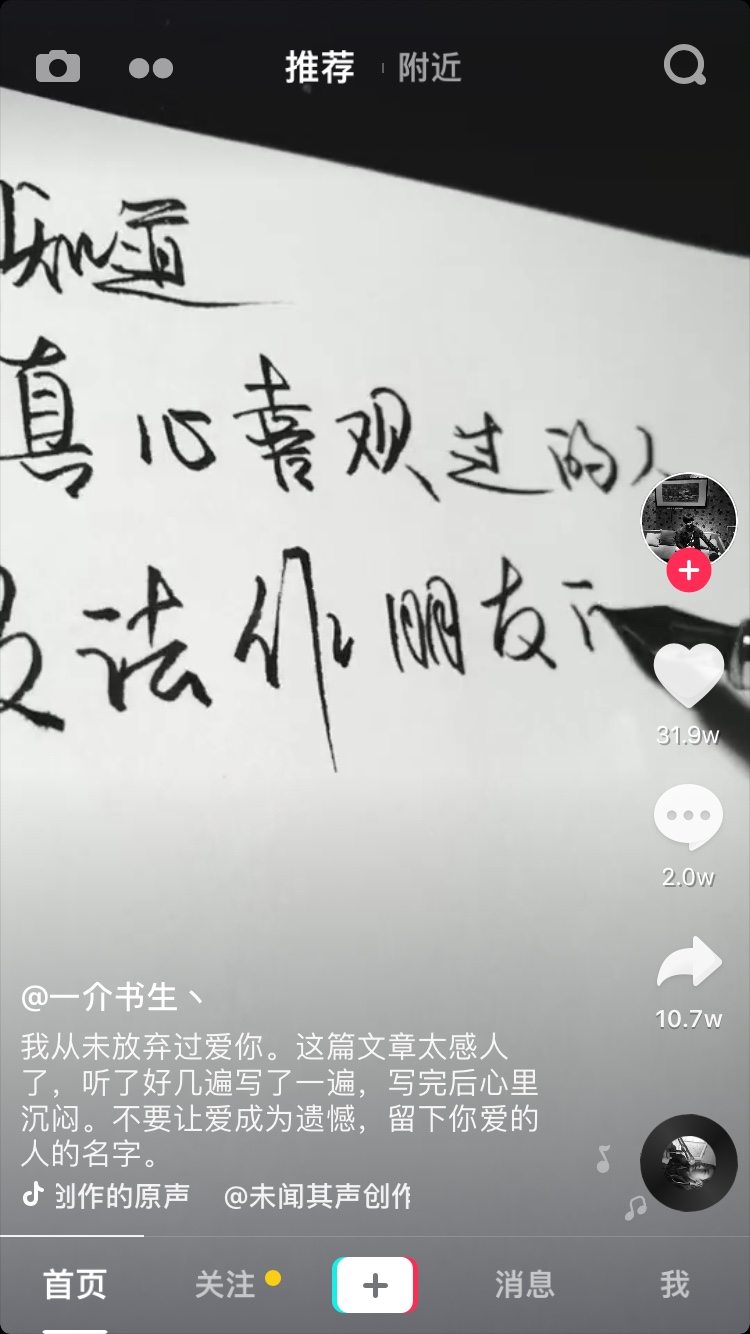 推荐
附近
知道
真心喜观过的人
法作朋友
31.9w
2.0w
10.7w
@一介书生丶
我从未放弃过爱你。这篇文章太感人
了，听了好几遍写了一遍，写完后心里
沉闷。不要让爱成为遗憾，留下你爱的
人的名字。
创作的原声 @未闻其声创作
首页
关注
消息
我